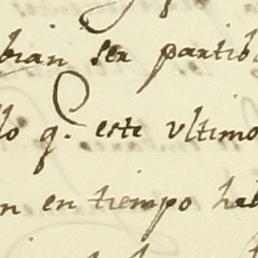 bian ser partib
lo q. este ultimo
n en tiempo hab